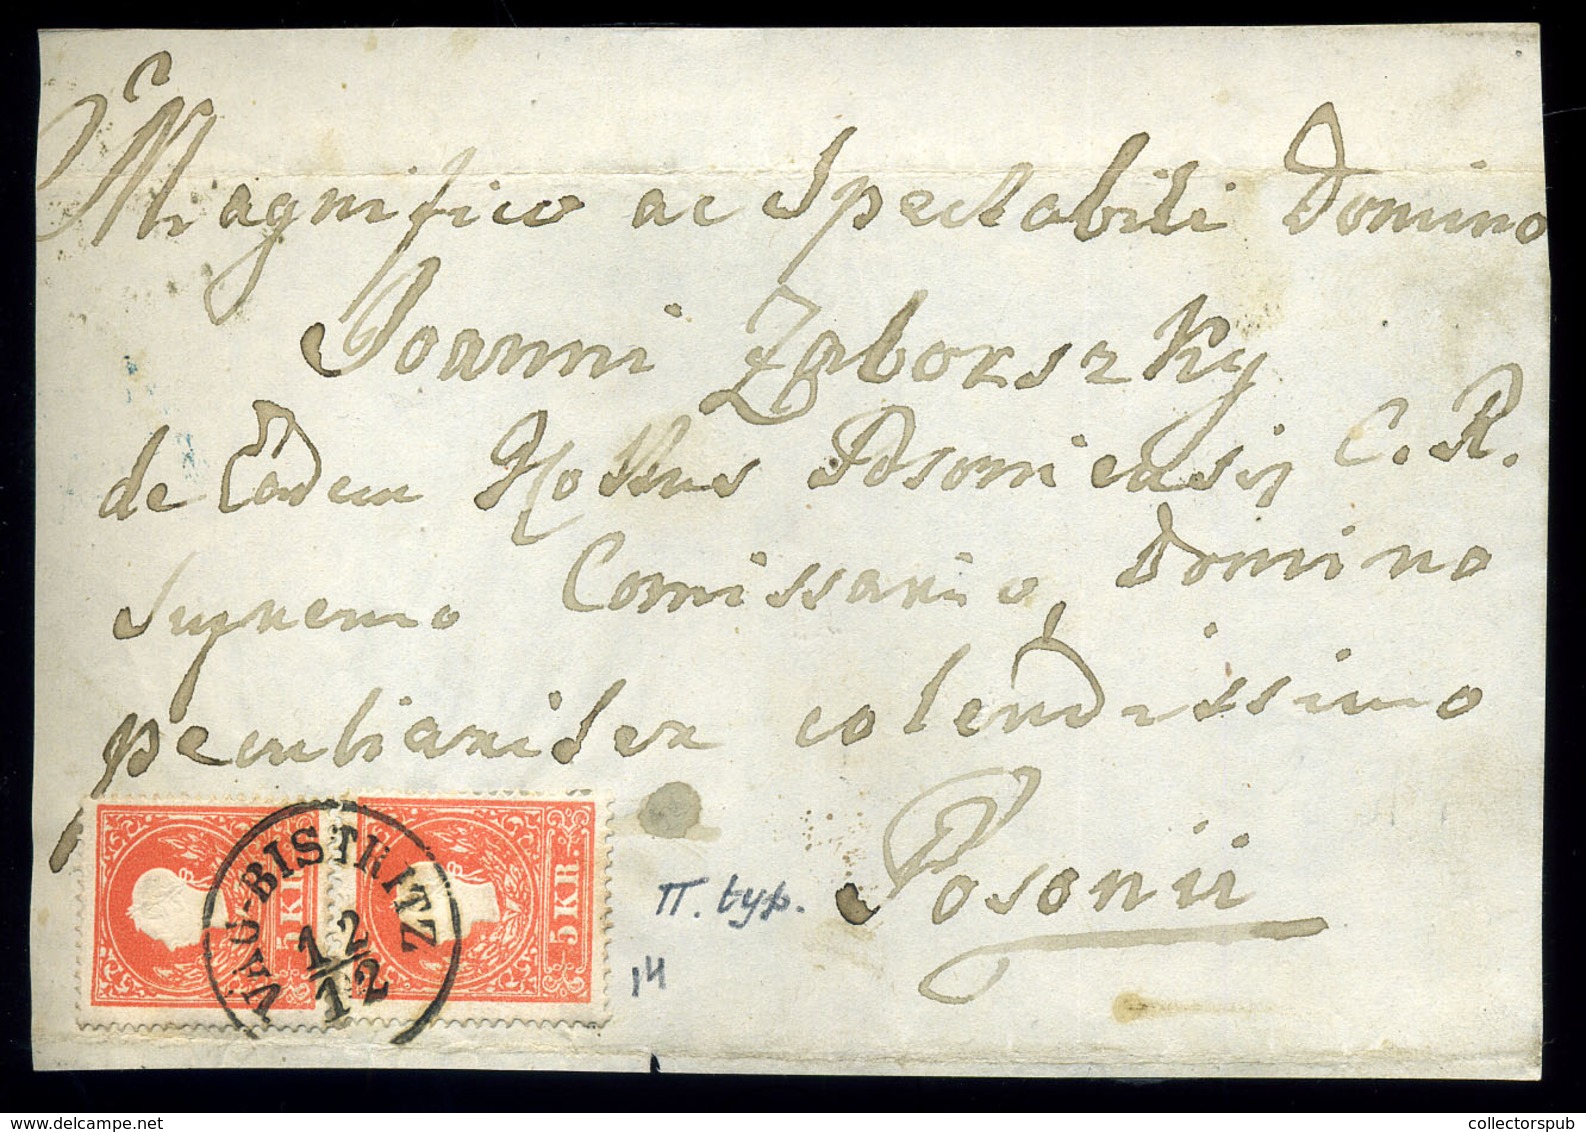 Magnifico ac Spectabili Domino
Joanni Zaborszky
de Eadem Posoniensis C. R.
Supremo Comissario, Domino
peculiariter colendissimo
Posonii
VÁG-BISTRITZ
12
12
5 KR.
5 KR.
II. typ.
14
collectorspub